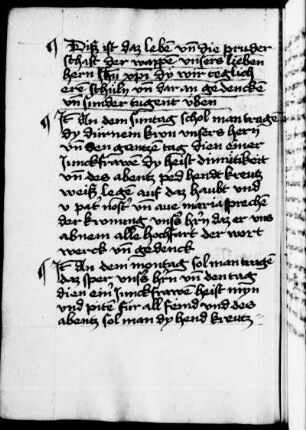 ¶ Diß ist daz lebē vn̄ die pruder
schafft der wappē vnsers lieben
hern Ihū xp̄i dy wir teglich
erē schulln vn̄ dar an gedencken
vn̄ sunder tugent vben
¶ Jt̄ An dem suntag schol man tragē
dy durnein kron vnsers hern
vn̄ den gentzē tag dien einer
Junckfrawē dy heist dimutikeit
vn̄ des abentz ped hendt kreutz
weiß legē auf daz haubt vnd
v pat nost̄ vn̄ aue maria sprechen
der kronung vnsß hr̄n daz er vns
abnem alle hochfart der wort
werck vn̄ gedenck
¶ Jt̄ An dem montag sol man tragē
daz sper vnsß hr̄n vn̄ den tag
dien ein Junckfrawē heist myn
vnd pitē für all feind vnd des
abentz sol man dy hend kreutz